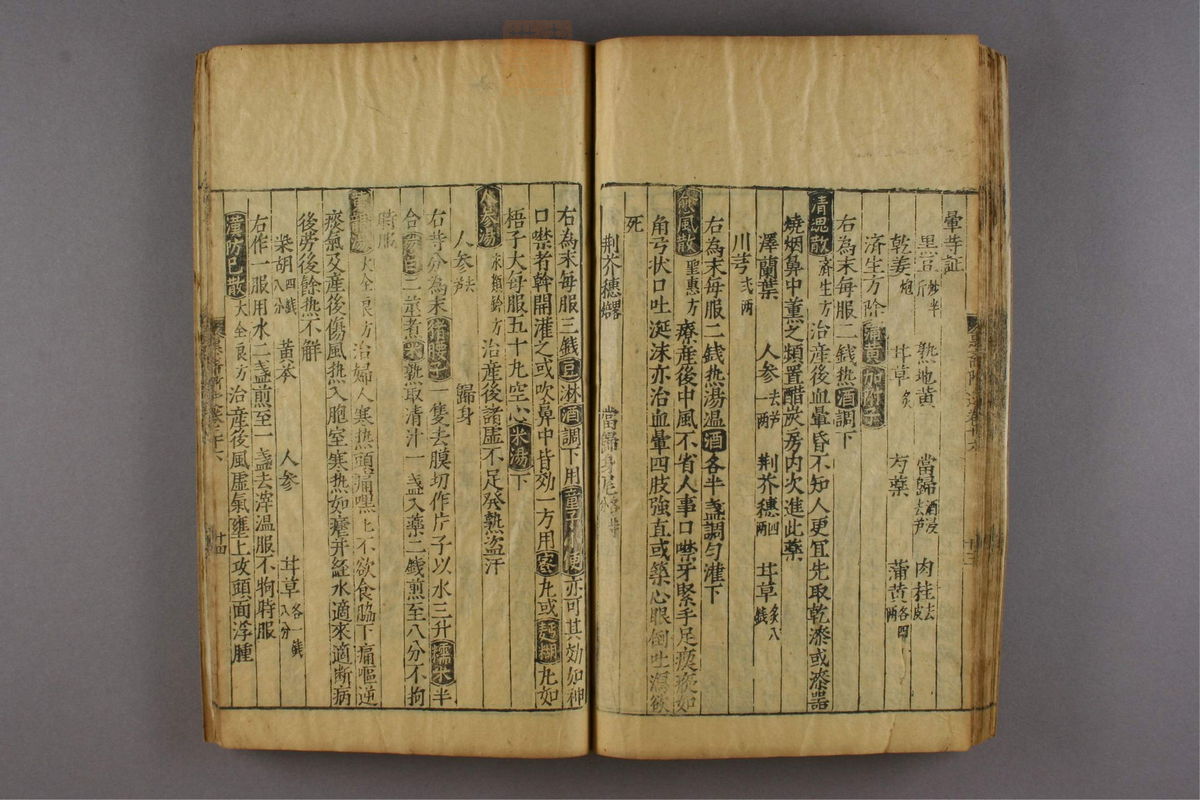 暈等証
黒豆炒半斤 熟地黄 當歸酒浸去芦 肉桂去皮
乾姜炮 甘草炙 芍藥 蒲黄各四兩
濟生方除蒲黄加附子
右為末每服二錢熱酒調下
清魂散濟生方 治產後血暈昏不知人更宜先取乾漆或漆器
燒烟鼻中薰之頻置醋炭房内次進此藥
澤蘭葉 人参去芦一兩 荆芥穗四兩 甘草炙八錢
川芎弍兩
右為末每服二錢熱湯温酒各半盞調勻灌下
愈風散聖惠方 療產後中風不省人事口噤牙緊手足瘈瘲如
角弓狀口吐涎沫亦治血暈四肢強直或築心眼倒吐瀉欲
死
荆芥穗 當歸身尾
右為末每服三錢豆淋酒調下用童子小便亦可其効如神
口噤者斡開灌之或吹鼻中皆効一方用蜜丸或麺糊丸如
梧子大每服五十丸空心米湯下
人参湯永類鈐方 治產後諸虛不足發熱盗汗
人参去芦 歸身
右等分為末猪腰子一隻去膜切作片子以水三升糯米半
合葱白二莖煮米熟取清汁一盞入藥二錢煎至八分不拘
時服
大全良方 治婦人寒熱頭痛嘿嘿不欲食脇下痛嘔逆
痰氣及產後傷風熱入胞室寒熱如瘧并経水適來適断病
後劳後餘熱不解
柴胡四錢八分 黄芩 人参 甘草各一錢八分
右作一服用水二盞煎至一盞去滓温服不拘時服
漢防己散大全良方 治產後風虛氣壅上攻頭面浮腫
十四